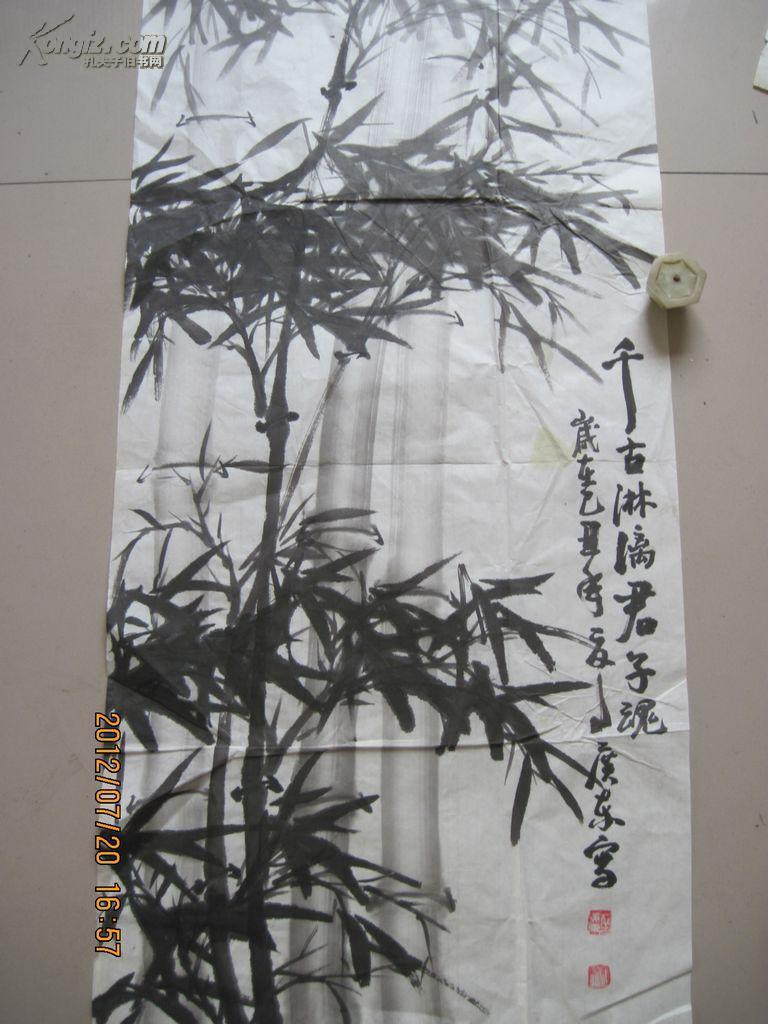 Kongfz.com
孔夫子旧书网
千古淋漓君子魂
岁在乙丑年夏 广东写
2012/07/20 16:57